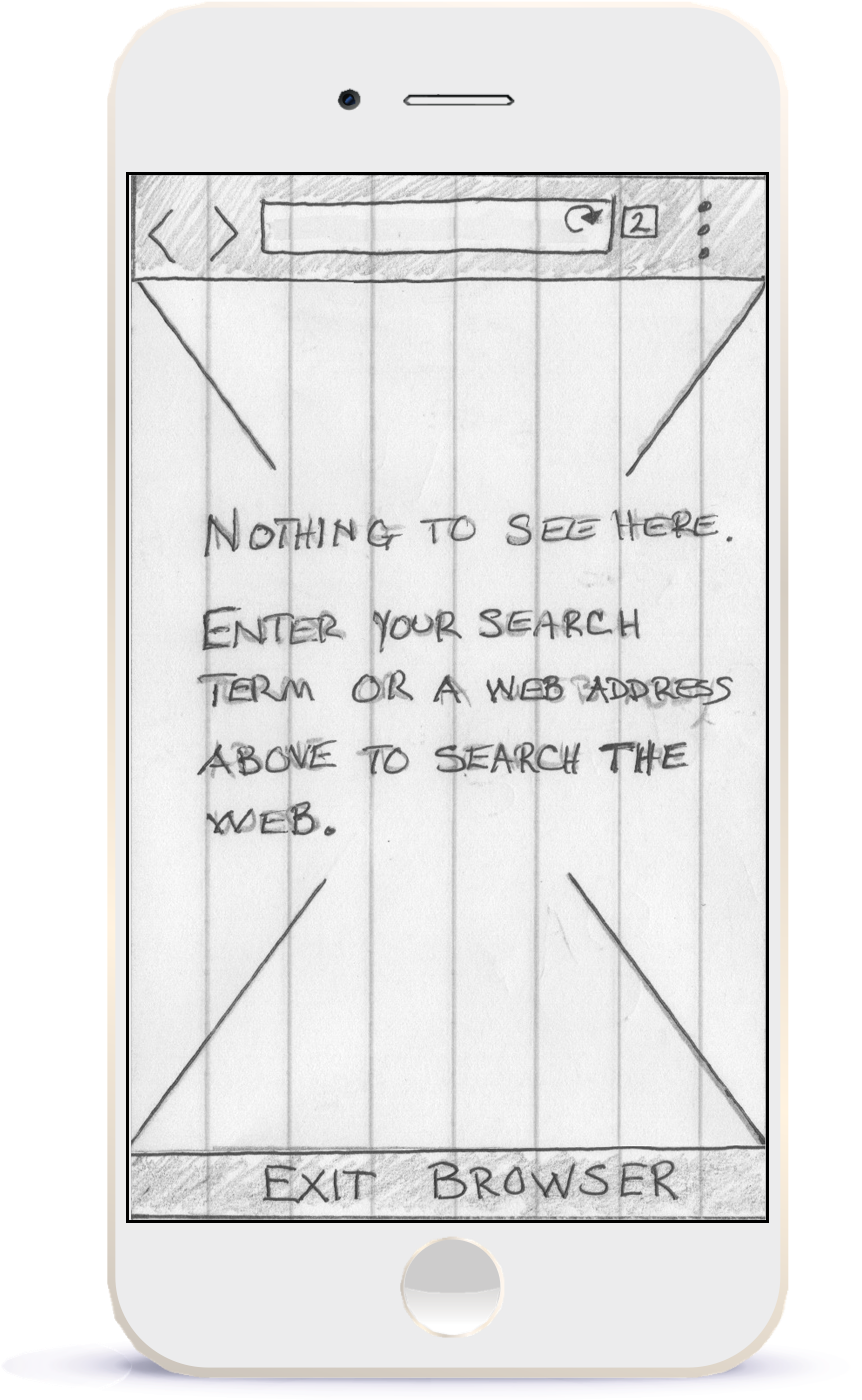 2
NOTHING TO SEE HERE.
ENTER YOUR SEARCH
TERM OR A WEB ADDRESS
ABOVE TO SEARCH THE
WEB.
EXIT BROWSER